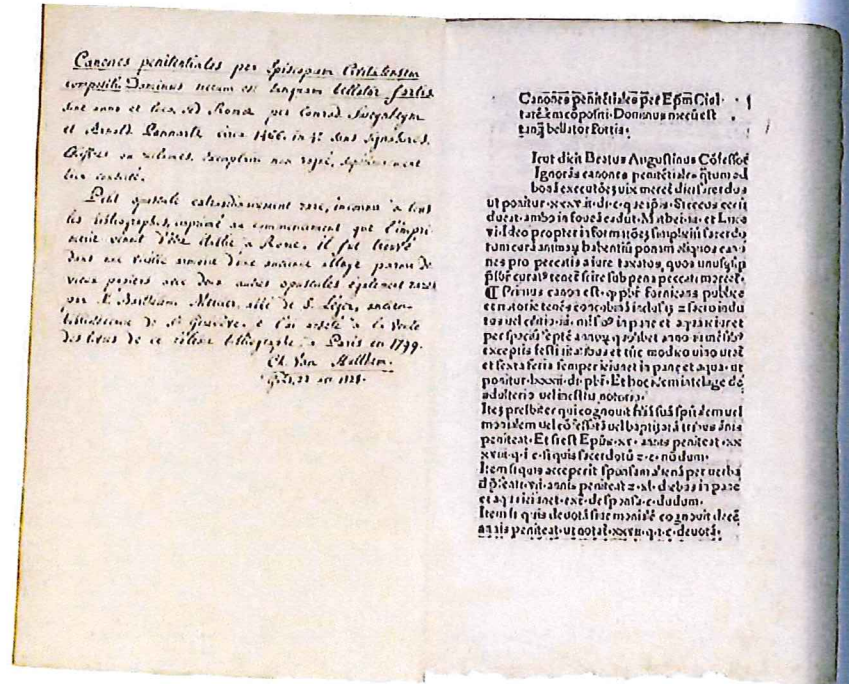 Canones penitentiales per Episcopum Civitatensem
compositi Dominus mecum est tanquam bellator fortis
sine anno et loco, sed Romae per Conrad. Sweynheym
et Arnold. Pannartz circa 1466. in 4º sans signatures,
chiffres ou réclames. exemplaire non rogné, supérieurement
bien conservé.
Petit opuscule extraordinairement rare, inconnu à tous
les bibliographes, imprimé au commencement que l'impri-
merie venait d'être établie à Rome. il fut trouvé
dans une vieille armoire d'une ancienne abbaye parmi de
vieux papiers avec deux autres opuscules également rares
par M. Barthélemi Mercier, abbé de S. Léger, ancien
bibliothécaire de Ste Geneviève. & l'ai acheté à la vente
des livres de ce célèbre bibliographe à Paris en 1799.
Ch. Van Hulthem.
Gand, 1828.
Canones penitētiales per Epm̄ Ciui
tatē em cōpositi· Dominus mecū est
tanq̄ bellator Fortis·
Icut dicit Beatus Augustinus Cōfessor
Ignorās canones penitētiales
bonū executoē uix meret dici sacerdos
ut ponitur·xxxviii·di·c·que ipsis· Si cecus cecū
ducat·ambo in foueā cadūt· Mathei·xv·et Luce
vi· Ideo propter informatiōes simpliciū sacerdo
tum curā animaꝝ habentiū ponam aliquos cano
nes pro peccatis a iure taxatos, quos unusq̄sq̄
p̄sbr̄ curat⁹ tenet̄ scire sub pena peccati mortal·
¶ Primus canon est·q̄ p̄br̄ fornicans publice
et notorie
per spaciū septē annoꝝ quolibet anno
exceptis festiuitatibus et tūc modico uino utat̄
et sexta feria semper ieiunet in pane et aqua·ut
ponitur·lxxxii·di·p̄br̄· Et hoc idem intellige de
adulterio uel incestu notorio·
Itē presbiter qui cognouit filiā suā spūalem uel
monialem uel cōfessatā uel baptizatā
peniteat· Et si est Ep̄us·xv· annis peniteat·xx
xvi·q·i·c·si quis sacerdotū ⁊·c·nōdum·
Item si quis acceperit sponsam alienā per uerba
d̄ p̄senti·vii·annis peniteat ⁊·xl·diebus in pane
et aqua ieiunet·ext·de sponsa·c·dudum·
Item si quis deuotā siue monialē cognouit decē
annis peniteat·ut notat̄·xxvii·q·i·c·deuotā·